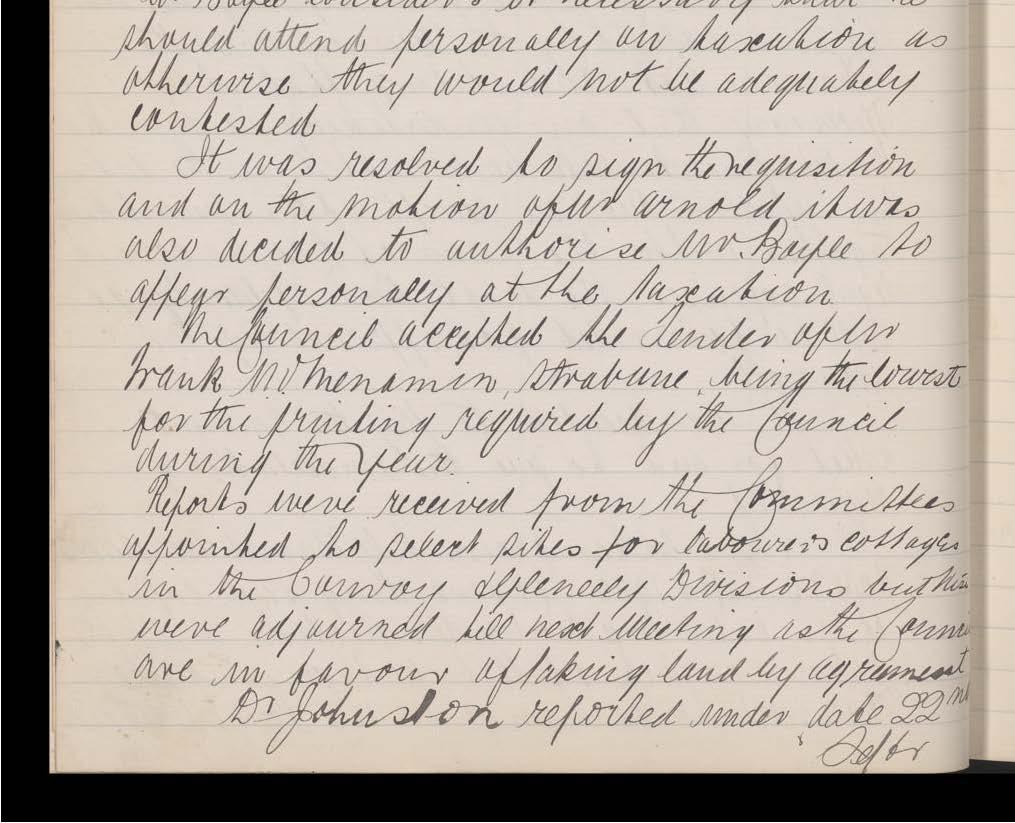 Mr. Boyle considers it necessary that he
should attend personally on taxation as
otherwise they would not be adequately
contested
It was resolved to sign the requisition
and on the motion of Mr Arnold it was
also decided to authorise Mr. Boyle to
appear personally at the taxation
The Council accepted the Tender of Mr
Frank McMenamin, Strabane, being the lowest
for the printing required by the Council
during the year.
Reports were received from the Committees
appointed to select sites for labourers cottages
in the Convoy & Gleneely Divisions but
were adjourned till next Meeting as the
are in favour of taking land by agreement
Dr Johnston reported under date 22nd